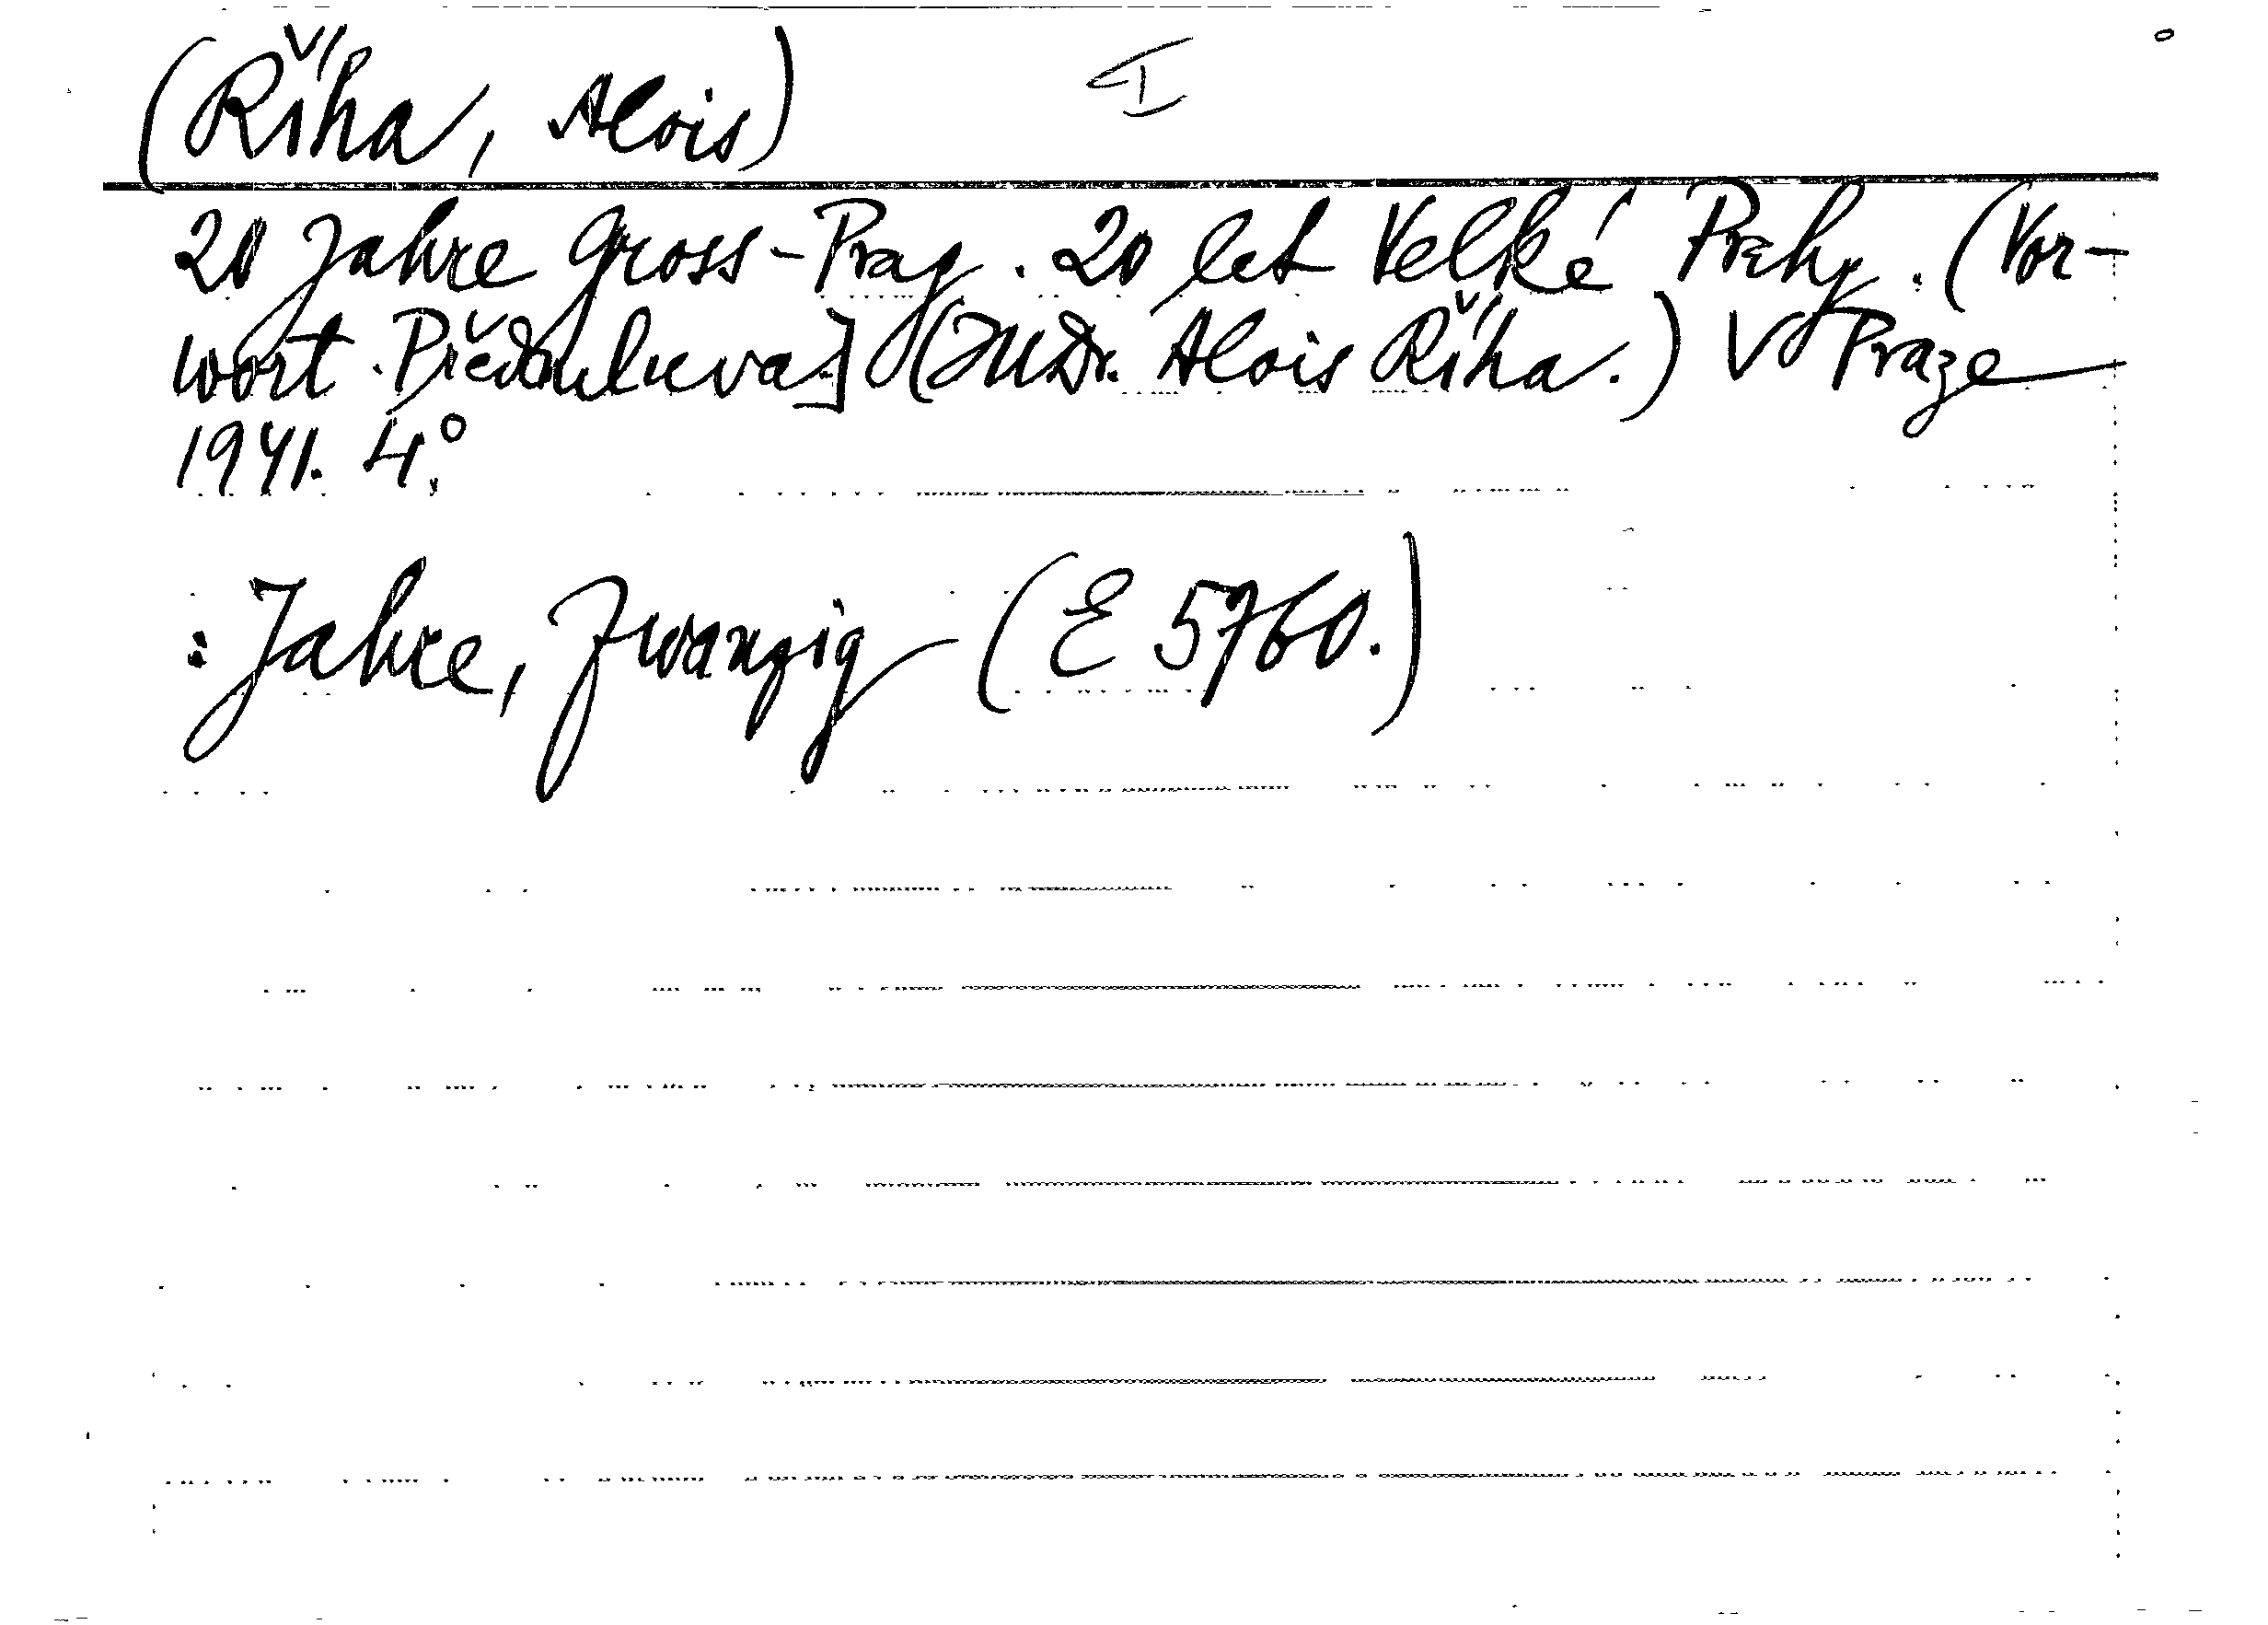 (Říha, Alois) I
20 Jahre Gross-Prag. 20 let Velké Prahy. (Vor-
wort. Předmluva.] (JUDr. Alois Říha.) V Praze
1941. 4°.
: Jahre, Zwanzig (E 5760.)